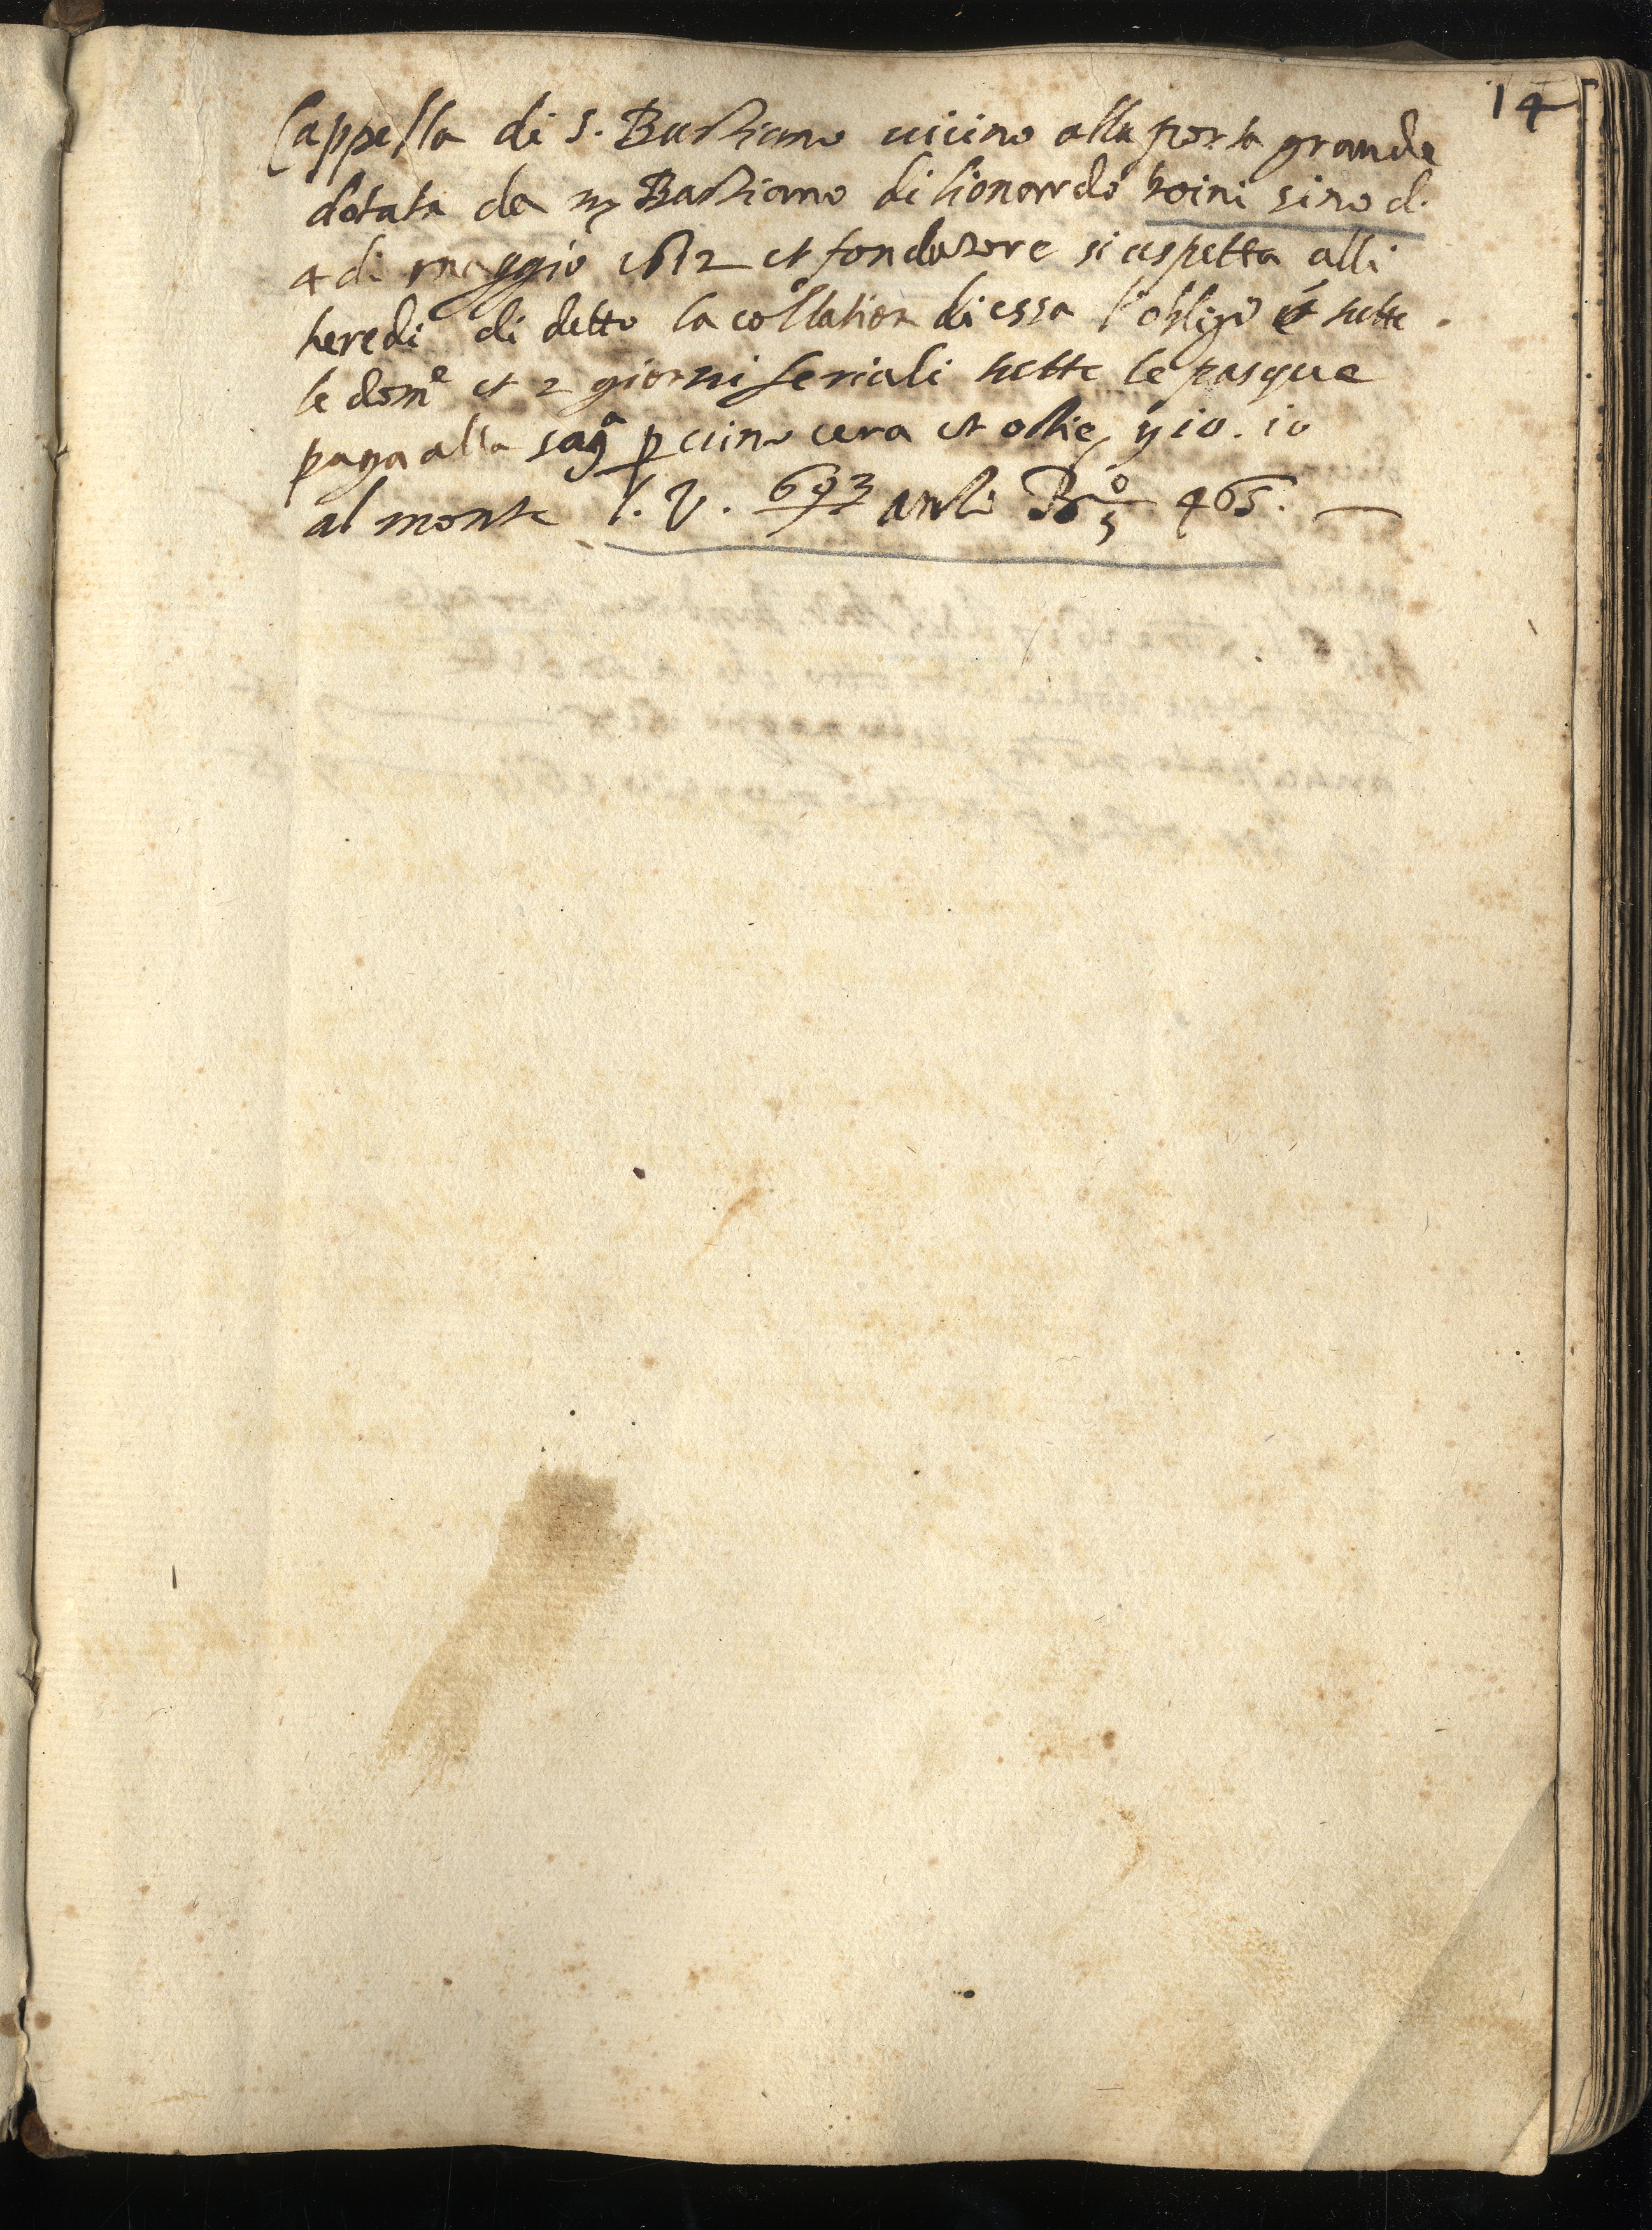 14
Cappella di S. Bastiano uicino alla porta grande
dotata da m Bastiano di lionardo boini sino d.
4 di maggio 1612 et fondatore si aspetta alli
heredi di detto la collation di essa l'obligo è tutte
le dom.e et 2 giorni feriali tutte le pasque
paga alla sag.a p uino cera et ostie y 10. 10
al monte 693 465.